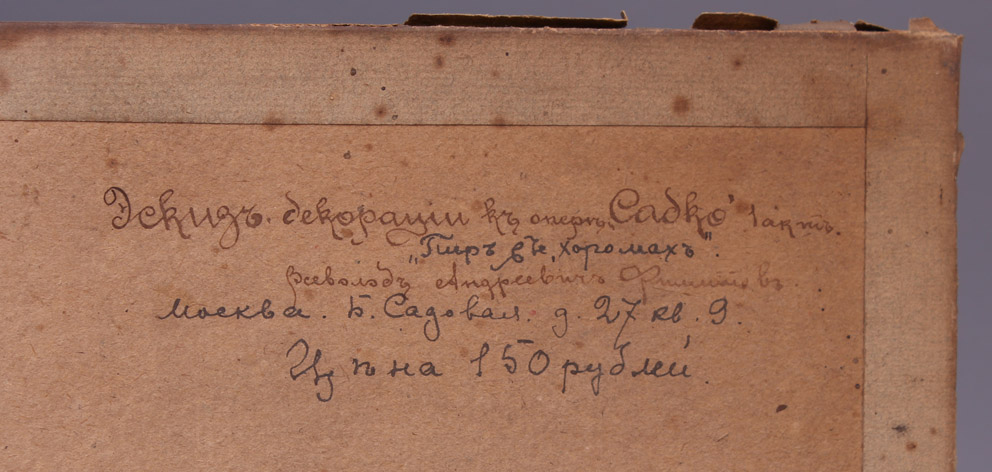 Эскизъ декорации къ оперѣ „Садко" 1 актъ.
„Пиръ въ хоромахъ".
Всеволодъ Андреевичъ
Москва. Б. Садовая. д. 27 кв. 9.
Цѣна 150 рублей.